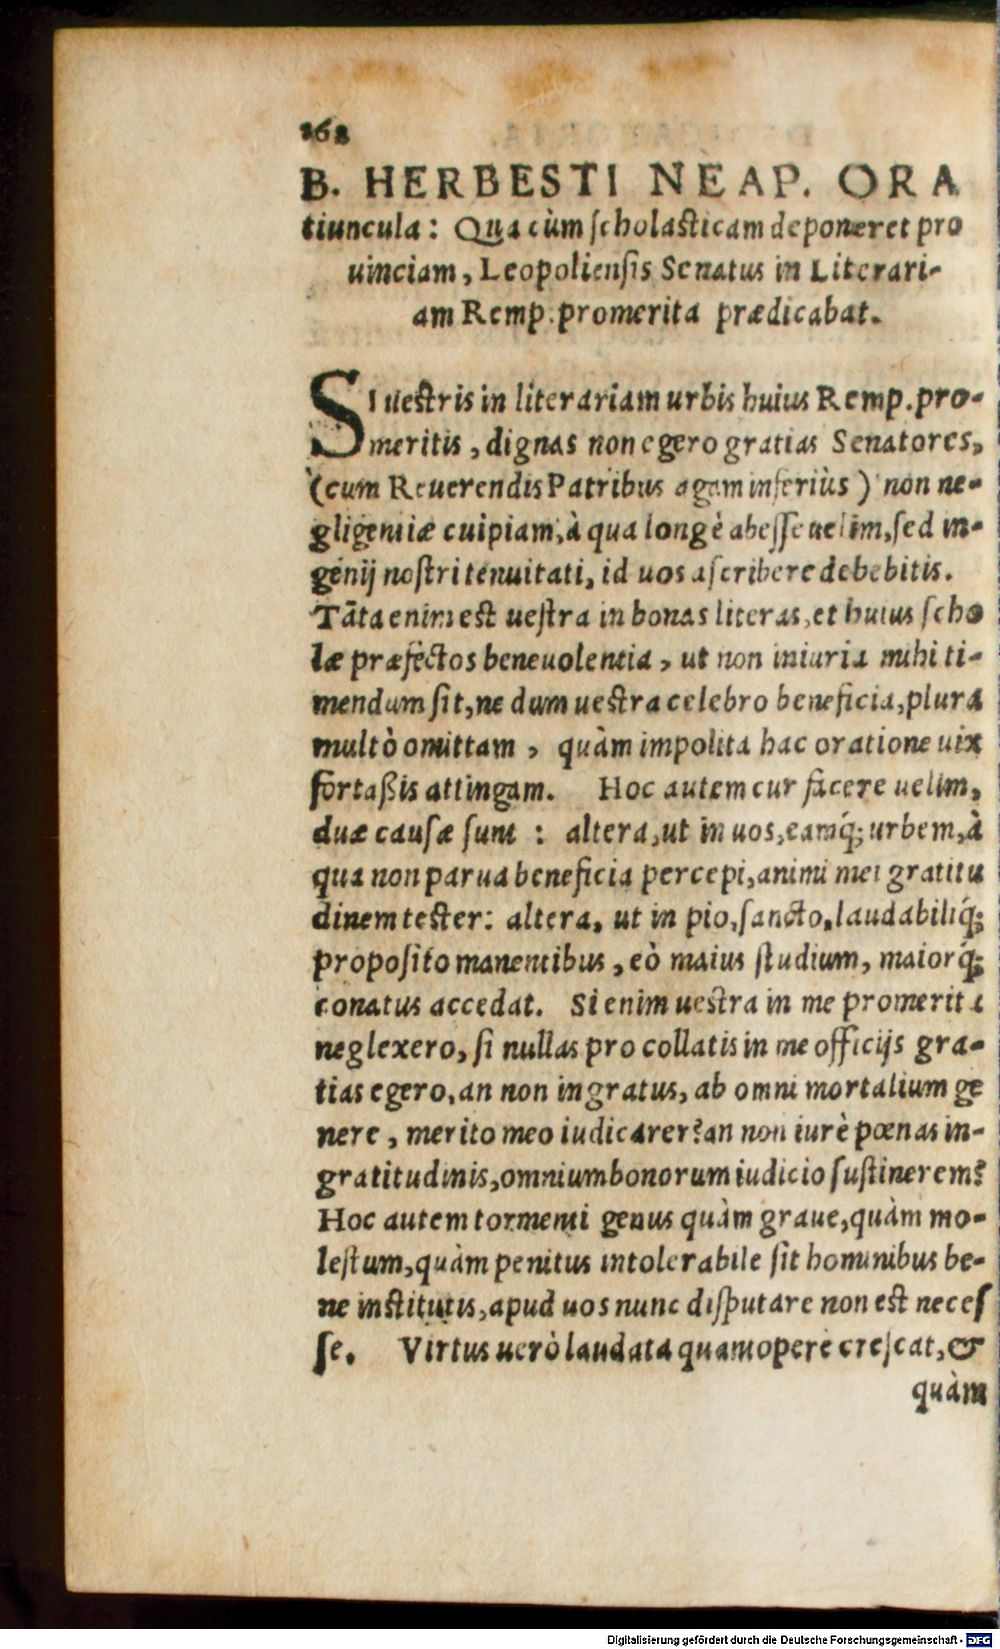 162
B. HERBESTI NEAP. ORA
tiuncula: Qua cùm scholasticam deponeret pro
uinciam, Leopoliensis Senatus in Literari-
am Remp. promerita prædicabat.
SI uestris in literariam urbis huius Remp. pro-
meritis, dignas non egero gratias Senatores,
(cum Reuerendis Patribus agam inferiùs) non ne-
gligentiæ cuipiam, à qua longè abesse uelim, sed in-
genij nostri tenuitati, id uos ascribere debebitis.
Tāta enim est uestra in bonas literas, et huius scho
læ præfectos beneuolentia, ut non iniuria mihi ti-
mendum sit, ne dum uestra celebro beneficia, plura
multò omittam, quàm impolita hac oratione uix
fortaßis attingam. Hoc autem cur facere uelim,
duæ causæ sunt: altera, ut in uos, eamq́; urbem, à
qua non parua beneficia percepi, animi mei gratitu
dinem tester: altera, ut in pio, sancto, laudabiliq́;
proposito manentibus, eò maius studium, maiorq́;
conatus accedat. Si enim uestra in me promerita
neglexero, si nullas pro collatis in me officijs gra-
tias egero, an non ingratus, ab omni mortalium ge
nere, merito meo iudicarer? an non iurè pœnas in-
gratitudinis, omnium bonorum iudicio sustinerem?
Hoc autem tormenti genus quàm graue, quàm mo-
lestum, quàm penitus intolerabile sit hominibus be-
ne institutis, apud uos nunc disputare non est neces
se. Virtus uerò laudata quamopere crescat, &
quàm
Digitalisierung gefördert durch die Deutsche Forschungsgemeinschaft - DFG